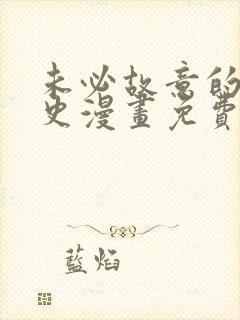 未必故意的
史漫畫免費
藍焰